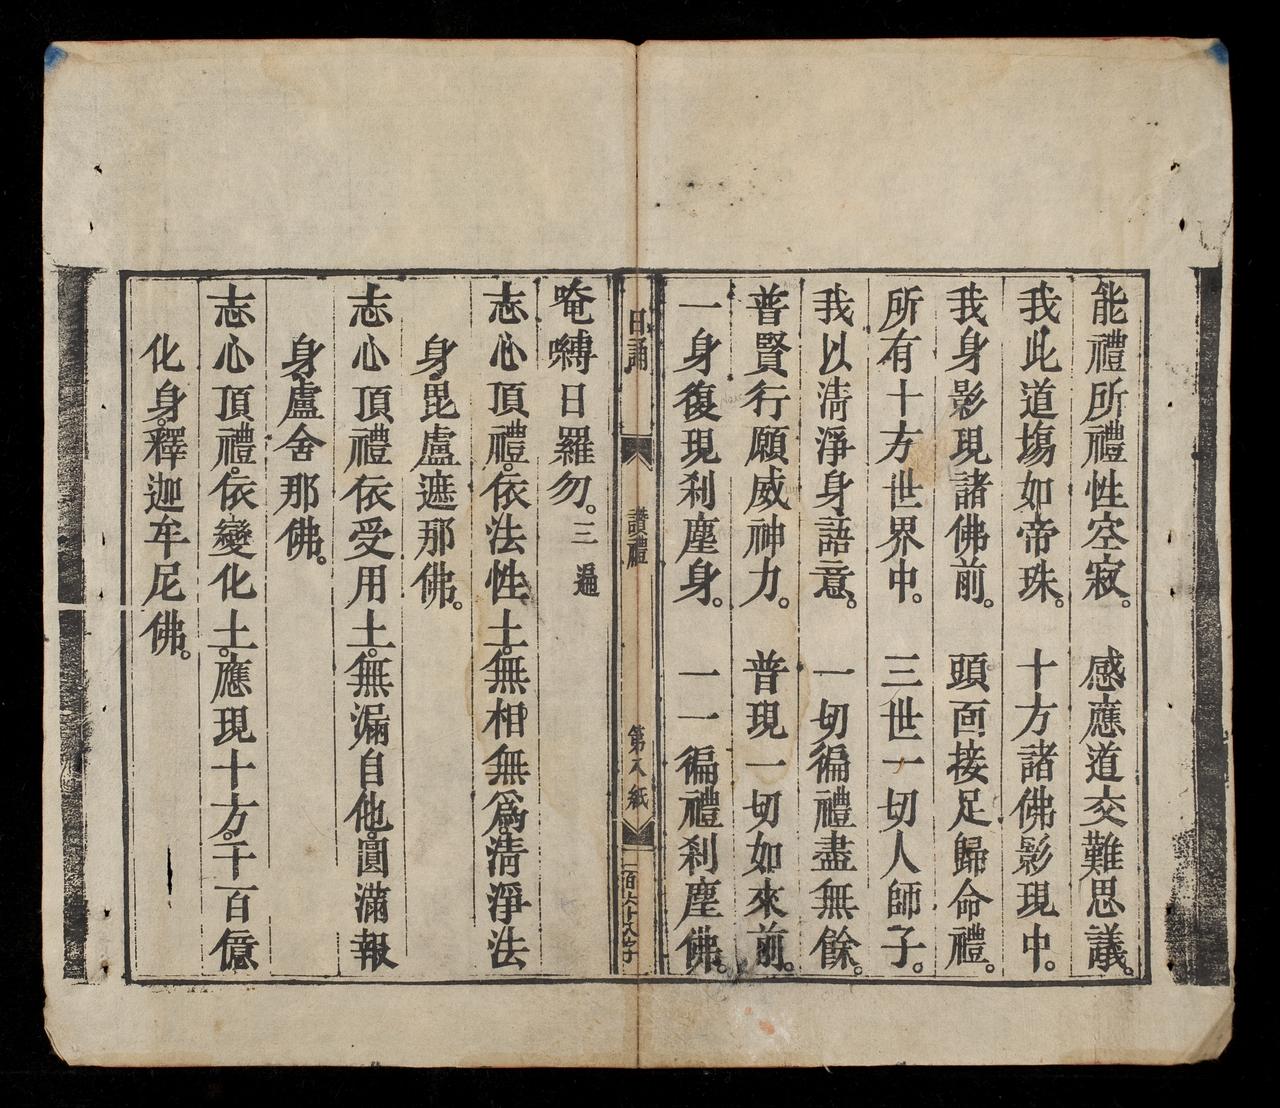 能禮所禮性空寂。感應道交難思議。
我此道塲如帝珠。十方諸佛影現中。
我身影現諸佛前。頭面接足歸命禮。
所有十方世界中。三世一切人師子。
我以淸淨身語意。一切徧禮盡無餘。
普賢行願威神力。普現一切如來前。
一身復現刹塵身。一一徧禮刹塵佛。
日誦 讚禮 第八紙 一百六十八字
唵嚩日羅勿。三遍
志心頂禮。依法性土。無相無爲。淸淨法
身。毘盧遮那佛。
志心頂禮。依受用土。無漏自他。圓滿報
身。盧舍那佛。
志心頂禮。依變化土。應現十方。千百億
化身。釋迦牟尼佛。